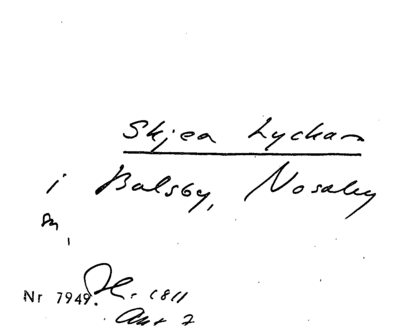 Skjea Lyckan
i Balsby, Nosaby
sn,
Nr 7949. 1811
Akt 7